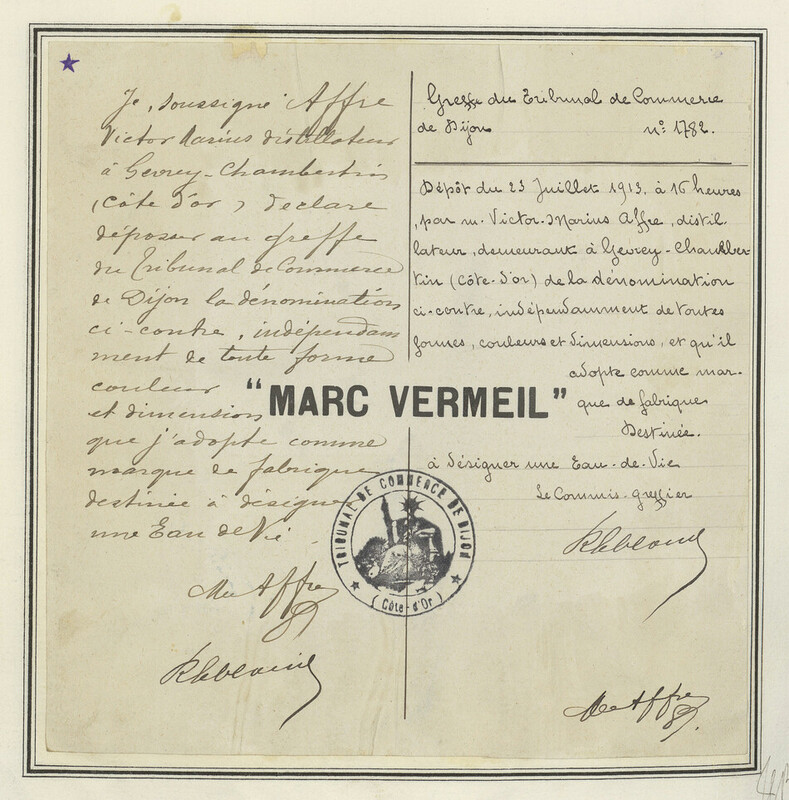 Je, soussigné Affre
Victor Marius distillateur
à Gevrey-Chambertin
(Côte d'or) déclare
déposer au greffe
du Tribunal de Commerce
de Dijon la dénomination
ci-contre, indépendam
ment de toute forme
couleur
et dimension
que j'adopte comme
marque de fabrique
destinée à désigner
une Eau de Vie
Affre
Greffe du Tribunal de Commerce
de Dijon n° 1782.
Dépôt du 23 Juillet 1913, à 16 heures
, par m. Victor-Marius Affre, distil.
lateur, demeurant à Gevrey-Chamber-
tin (Côte-d'or) de la dénomination
ci-contre, indépendamment de toutes
formes, couleurs et dimensions, et qu'il
adopte comme mar-
que de fabrique
Destinée.
à désigner une Eau-de-Vie
Le Commis-greffier
Affre
"MARC VERMEIL"
TRIBUNAL DE COMMERCE DE DIJON
(Côte-d'Or)